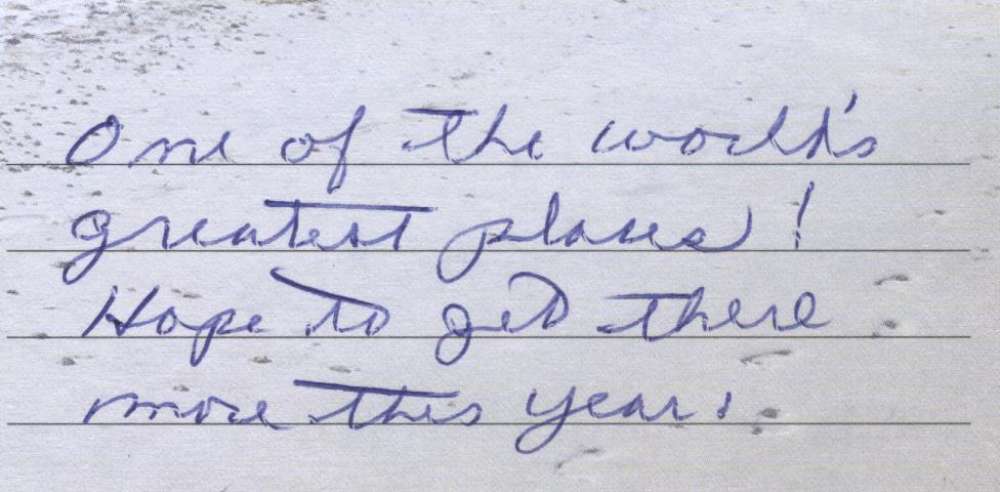 One of the world's
greatest places!
Hope to get there
more this year.